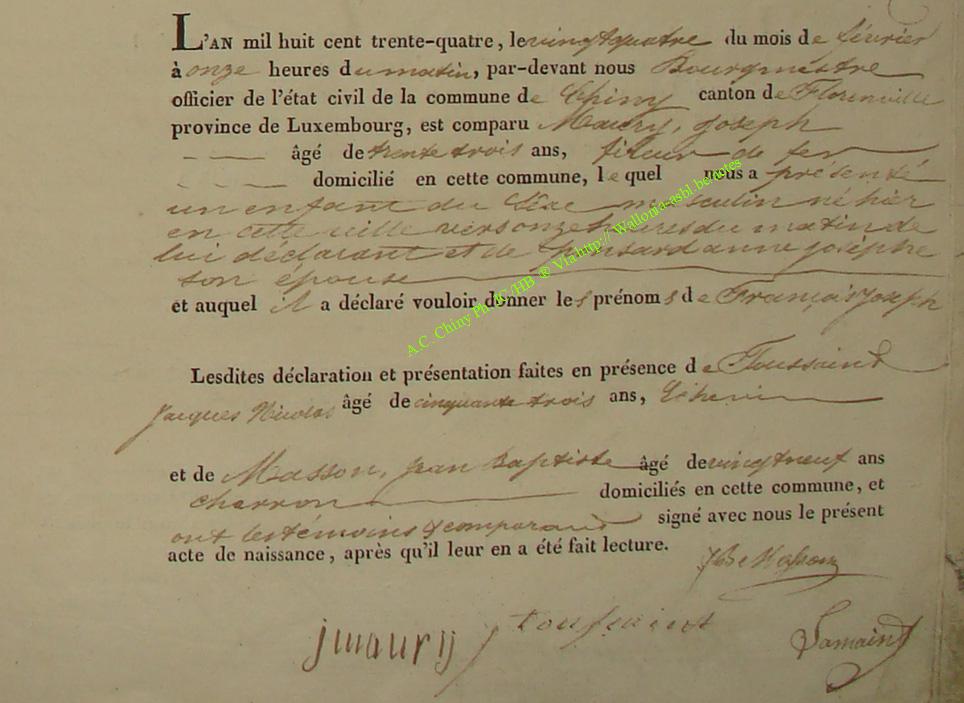 L'AN mil huit cent trente-quatre, le vingt quatre du mois de février
à onze heures du matin, par-devant nous Bourgmestre
officier de l'état civil de la commune de Chiny canton de Florenville
province de Luxembourg, est comparu Maury, Joseph
âgé de trente trois ans, fileur de fer
domicilié en cette commune, le quel nous a présenté
un enfant du sexe masculin né hier
en cette ville vers onze heures du matin de
lui déclarant et de anne josèphe
son épouse
et auquel il a déclaré vouloir donner les prénoms de François Joseph
Lesdites déclaration et présentation faites en présence de Toussaint
Jacques Nicolas âgé de cinquante trois ans, Echevin
et de Masson, jean Baptiste âgé de vingt neuf ans
charron domiciliés en cette commune, et
ont les témoins & comparant signé avec nous le présent
acte de naissance, après qu'il leur en a été fait lecture.
JB Masson
jmaury toussaint
A.C. Chiny Ph. JC/HB ® Via http:// Wallonia-asbl.be/notes